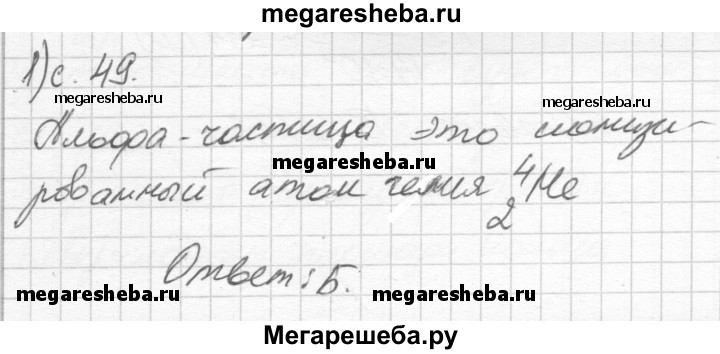 megaresheba.ru
1) с. 49.
megaresheba.ru
megaresheba.ru
Альфа-частица это ионизи-
megaresheba.ru
рованный атом гелия ⁴₂He
Ответ: Б.
megaresheba.ru
megaresheba.ru
Мегарешеба.ру